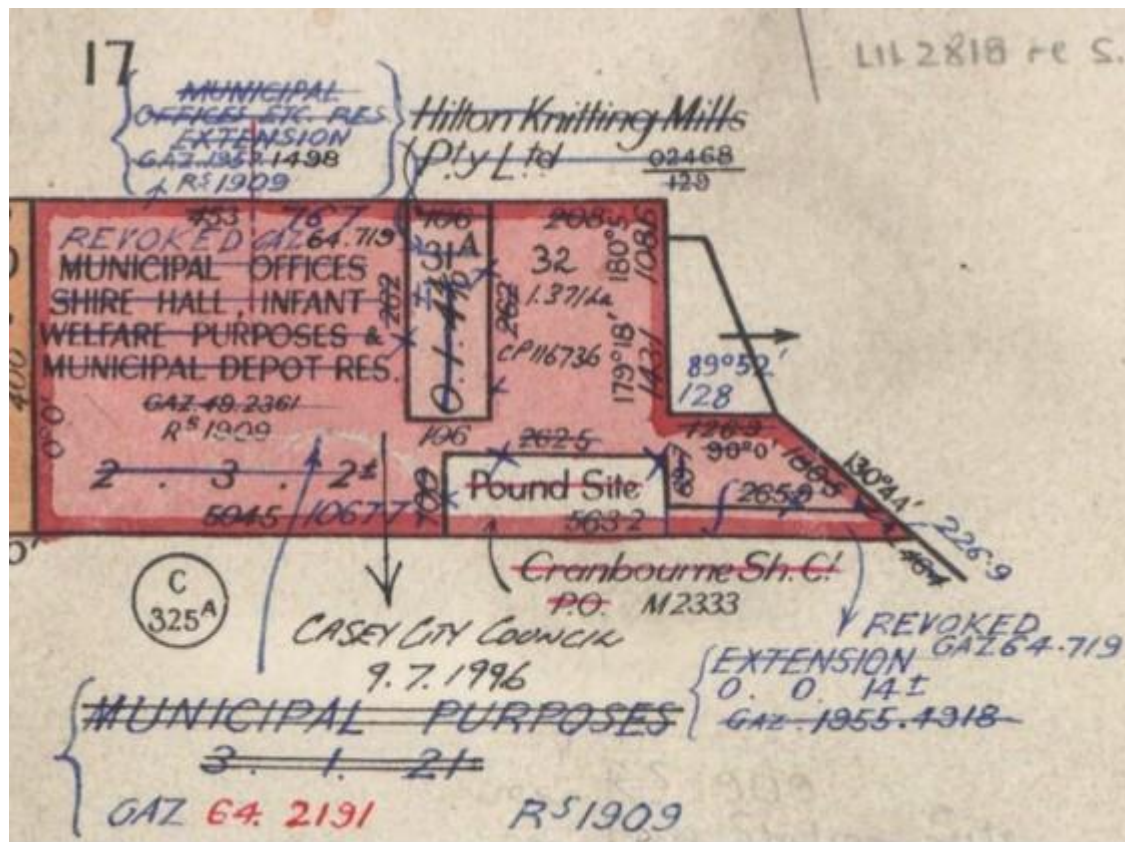 17
LII 2818 re S.
MUNICIPAL
OFFICES ETC. RES.
EXTENSION
GAZ. 1957.1498
RS 1909
Hilton Knitting Mills
Pty Ltd
02468
129
453 767
REVOKED GAZ 64.719
MUNICIPAL OFFICES
SHIRE HALL, INFANT
WELFARE PURPOSES &
MUNICIPAL DEPOT RES.
GAZ. 49.2361
RS 1909
2 . 3 . 2±
504.5 1067.7
400
0°0'
106
31A
262
106
208
32
1.371 ha
262
CP116736
180°5'
108.6
179°18'
143.1
89°52'
128
126.9
90°0'
180.5
130°44'
265.9
226.9
46.4
262.5
700
697
Pound Site
563.2
Cranbourne Sh. Cl.
P.O. M2333
C
325A
CASEY CITY COUNCIL
9.7.1996
REVOKED
GAZ 64.719
EXTENSION
0. 0. 14±
GAZ. 1955.4918
MUNICIPAL PURPOSES
3. 1. 21±
GAZ 64. 2191 RS 1909